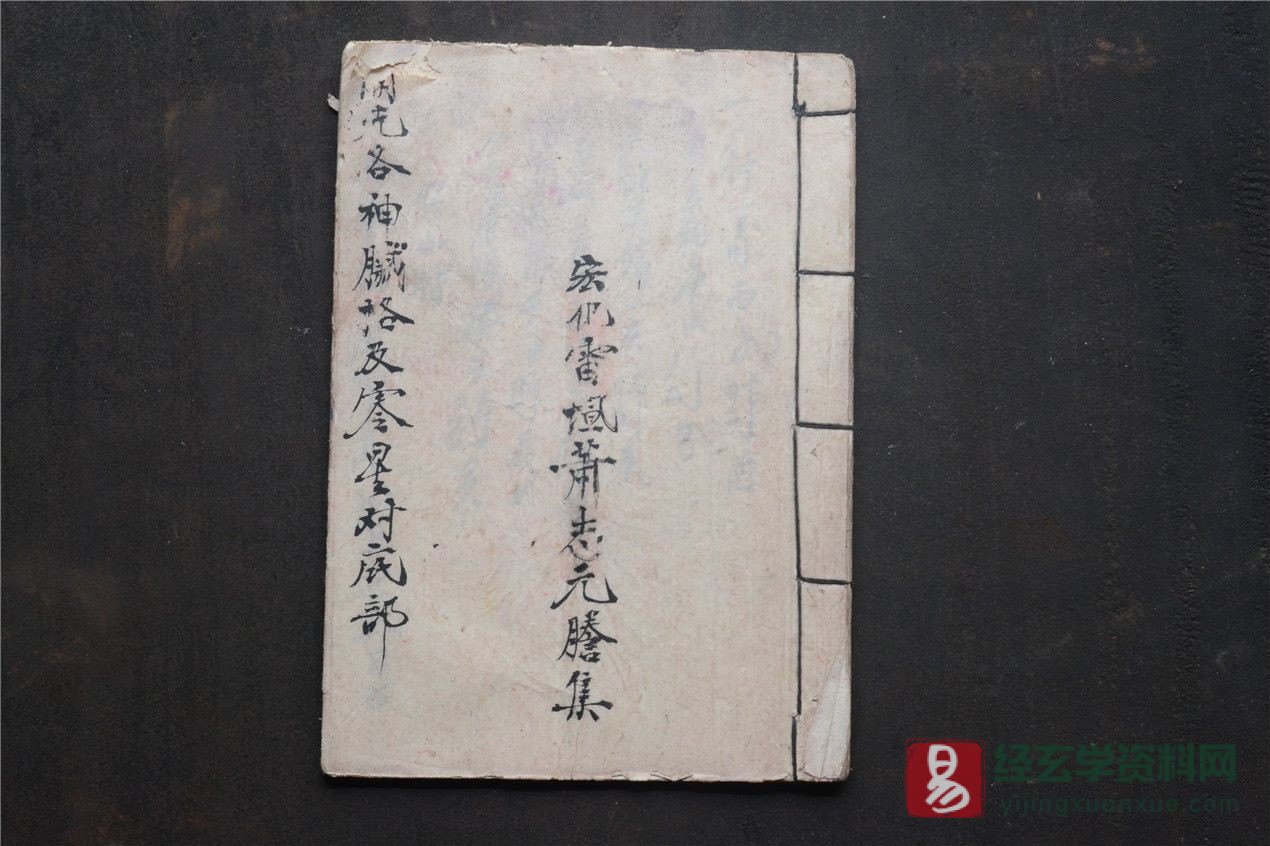 開光各神臟格及零星对底部
宏仉雷填蕭志元謄集
易
经玄学资料网
yijingxuanxue.com